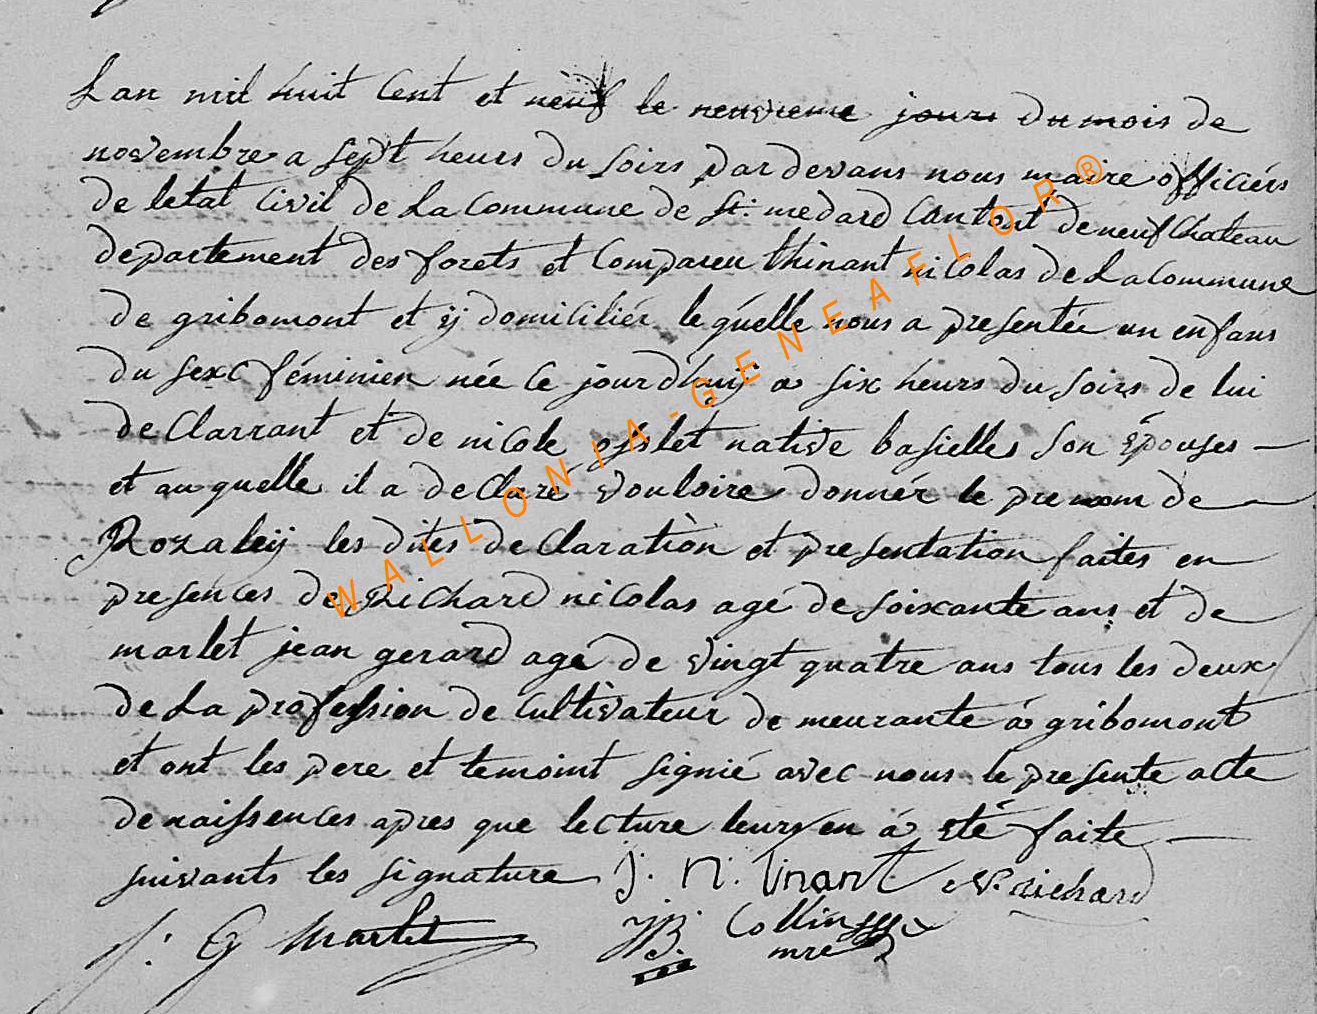 Lan mil huit Cent et neuf le neuvieme jours du mois de
novembre a sept heurs du soirs par devans nous maire officiérs
de letat Civil de La Commune de St: medard Cantont de neufChateau
departement des forets et Compareu thinant nicolas de La Commune
de gribomont et ÿ domiciliér le quélle nous a presentée un enfans
du sexe féminien née Ce jourdhuÿ a six heurs du soirs de lui
de Clarrant et de nicole oslet native baseilles son épouses —
et au quelle il a declaré vouloire donnér le prenom de —
Rozaleÿ les dites declaration et presentation faites en
presences de Richard nicolas agé de soixante ans et de
marlet jean gerard agé de vingt quatre ans tous les deux
de La profession de Cultivateur de meurante á gribomont
et ont les pere et temoint signié avec nous le presente acte
de naissences apres que lecture leurs en á eté faite —
suivants les signature J: N: Tinant N: Richard
J: G Marlet JB: Collin
mre
WALLONIA-GENEAFLOR®